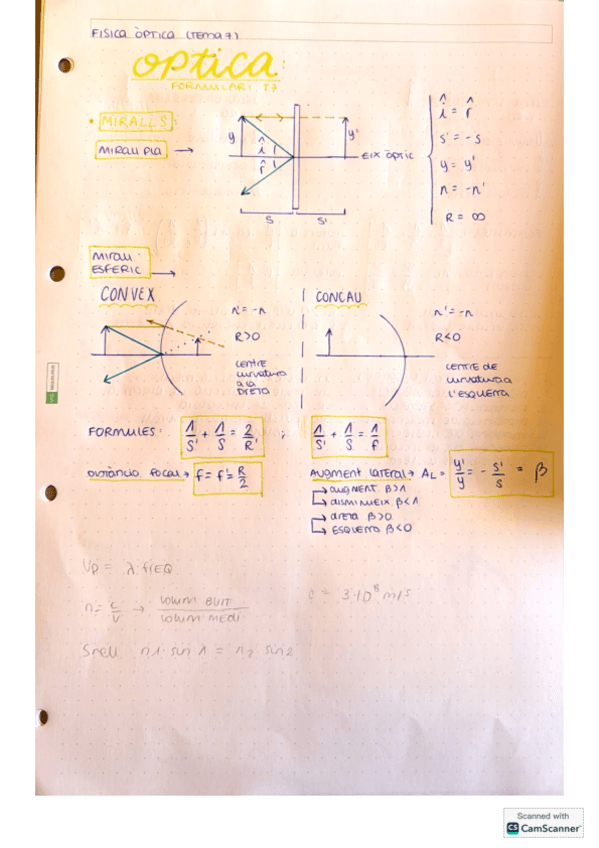 FISICA ÒPTICA (TEMA 7)
OPTICA:
FORMULARI T.7
• MIRALLS:
MIRALL PLA →
y
î
r̂
y'
EIX ÒPTIC
S
S'
î = r̂
s' = -s
y = y'
n = -n'
R = ∞
MIRALL ESFERIC →
CONVEX
n' = -n
R>0
CENTRE
curvatura
a la
DRETA
CONCAU
n' = -n
R<0
CENTRE DE
curvatura a
L'ESQUERRA
FORMULES: 1/S' + 1/S = 2/R ; 1/S' + 1/S = 1/f
distància focal → f = f' = R/2
AUGMENT LATERAL → AL = y'/y = - s'/s = β
AUGMENT β>1
DISMINUEIX β<1
DRETA β>0
ESQUERRA β<0
Vp = λ·freq
n = c/v → COLUM BUIT / COLUM MEDI
c = 3·10⁸ m/s
Snell n1·sin 1 = n2·sin 2
Scanned with
CS CamScanner